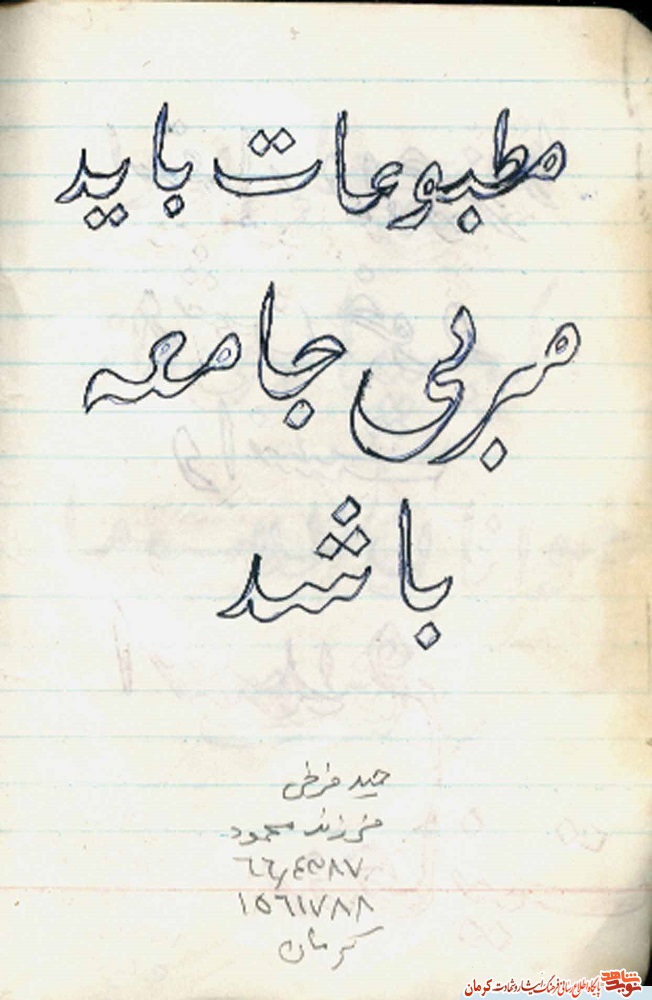 مطبوعات باید
مربی جامعه
باشد
حمید فرخی
فرزند محمود
۱۵۶۱۷۸۸
کرمان
نوید شاهد
پایگاه اطلاع رسانی فرهنگ ایثار و شهادت کرمان